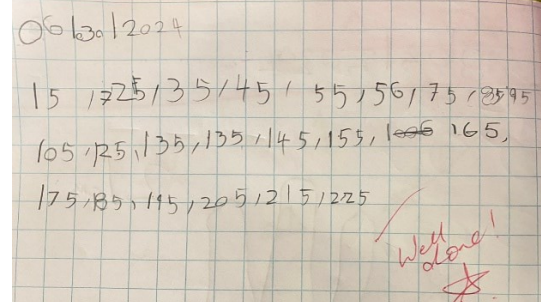 06/30/2024
15, 25, 35, 45, 55, 56, 75, 85 95
105, 125, 135, 135, 145, 155, 165,
175, 185, 195, 205, 215, 225
Well
done!